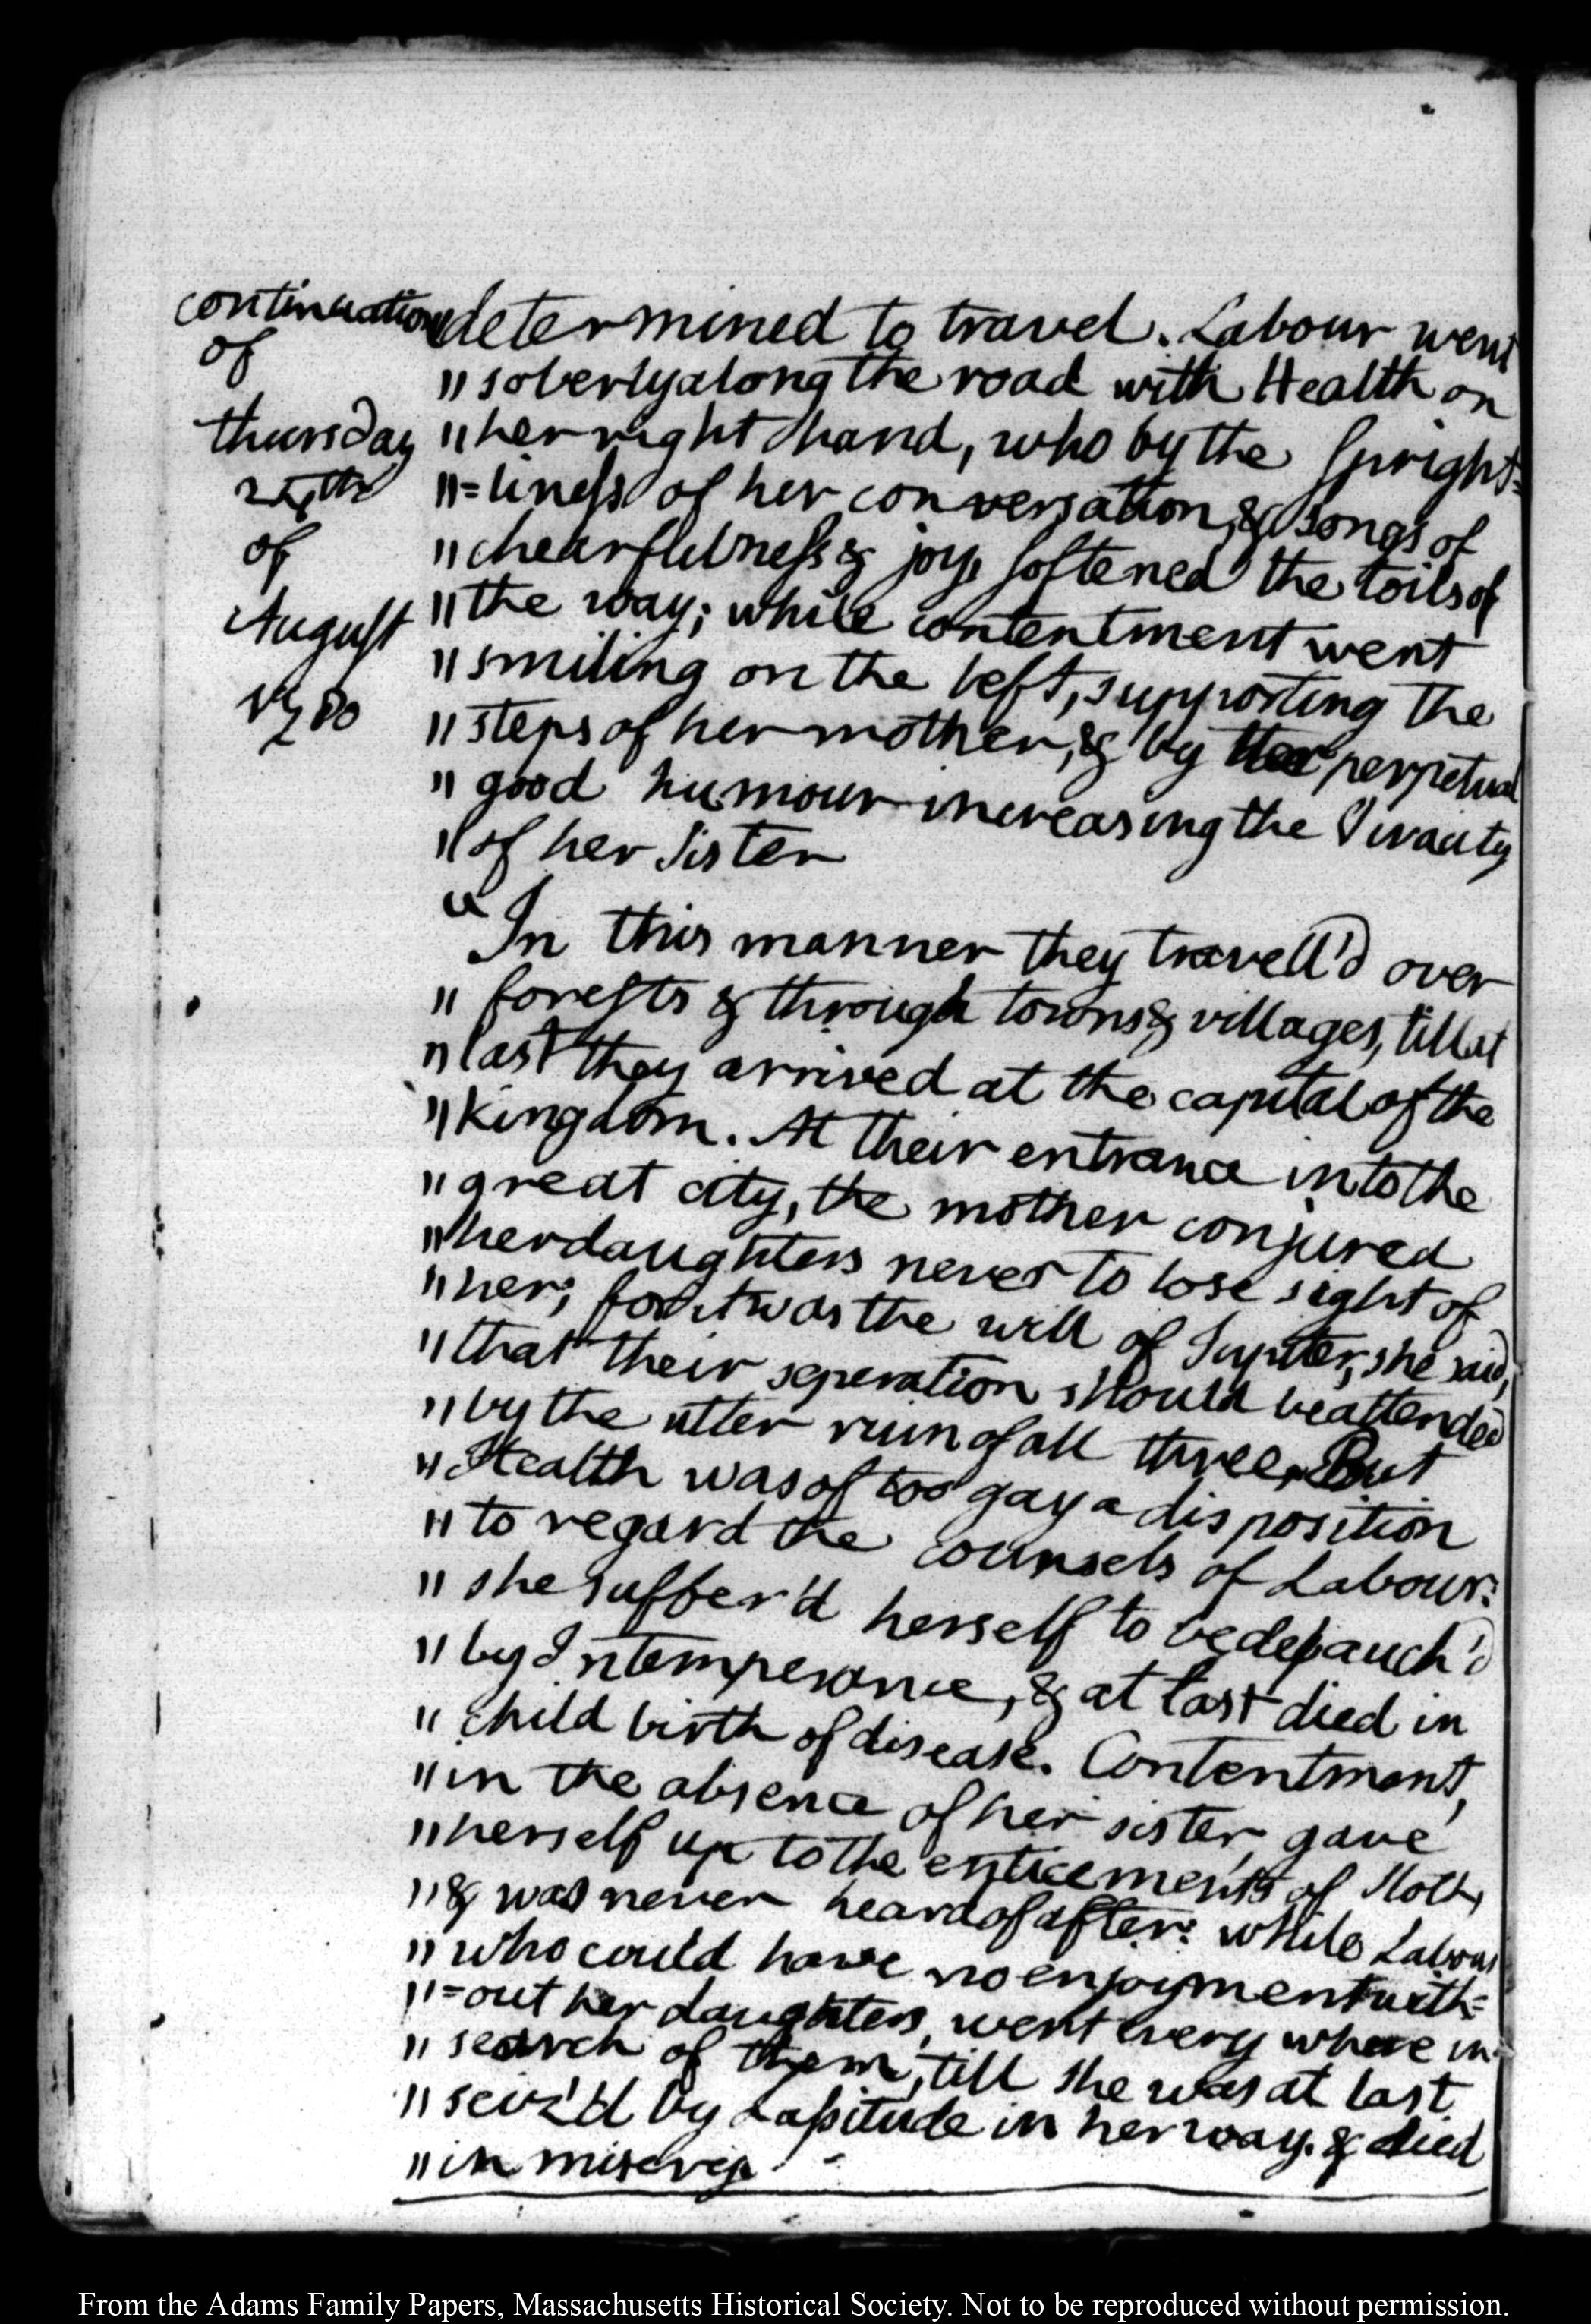 continuation
of
thursday
of
August
1780
determined to travel. Labour went
"soberly along the road with Health on
"her right hand, who by the spright=
"=liness of her conversation, & songs of
"chearfulness & joy, softened the toils of
"the way; while contentment went
"smiling on the left, supporting the
"steps of her mother, & by her perpetual
"good humour increasing the Vivacity
"of her Sister
"In this manner they travell'd over
"forests & through towns & villages, till at
"last they arrived at the capital of the
"Kingdom. At their entrance into the
"great city, the mother conjured
"her daughters never to lose sight of
"her; for it was the will of Jupiter, she said,
"that their seperation should be attended
"by the utter ruin of all three. But
"Health was of too gay a disposition
"to regard the counsels of Labour:
"she suffer'd herself to be debauch'd
"by Intemperance, & at last died in
"child birth of disease. Contentment,
"in the absence of her sister, gave
"herself up to the enticements of Sloth,
"& was never heard of after: while Labour
"who could have no enjoyment with=
"=out her daughters, went every where in
"search of them, till she was at last
"seiz'd by Lassitude in her way, & died
"in misery
From the Adams Family Papers, Massachusetts Historical Society. Not to be reproduced without permission.